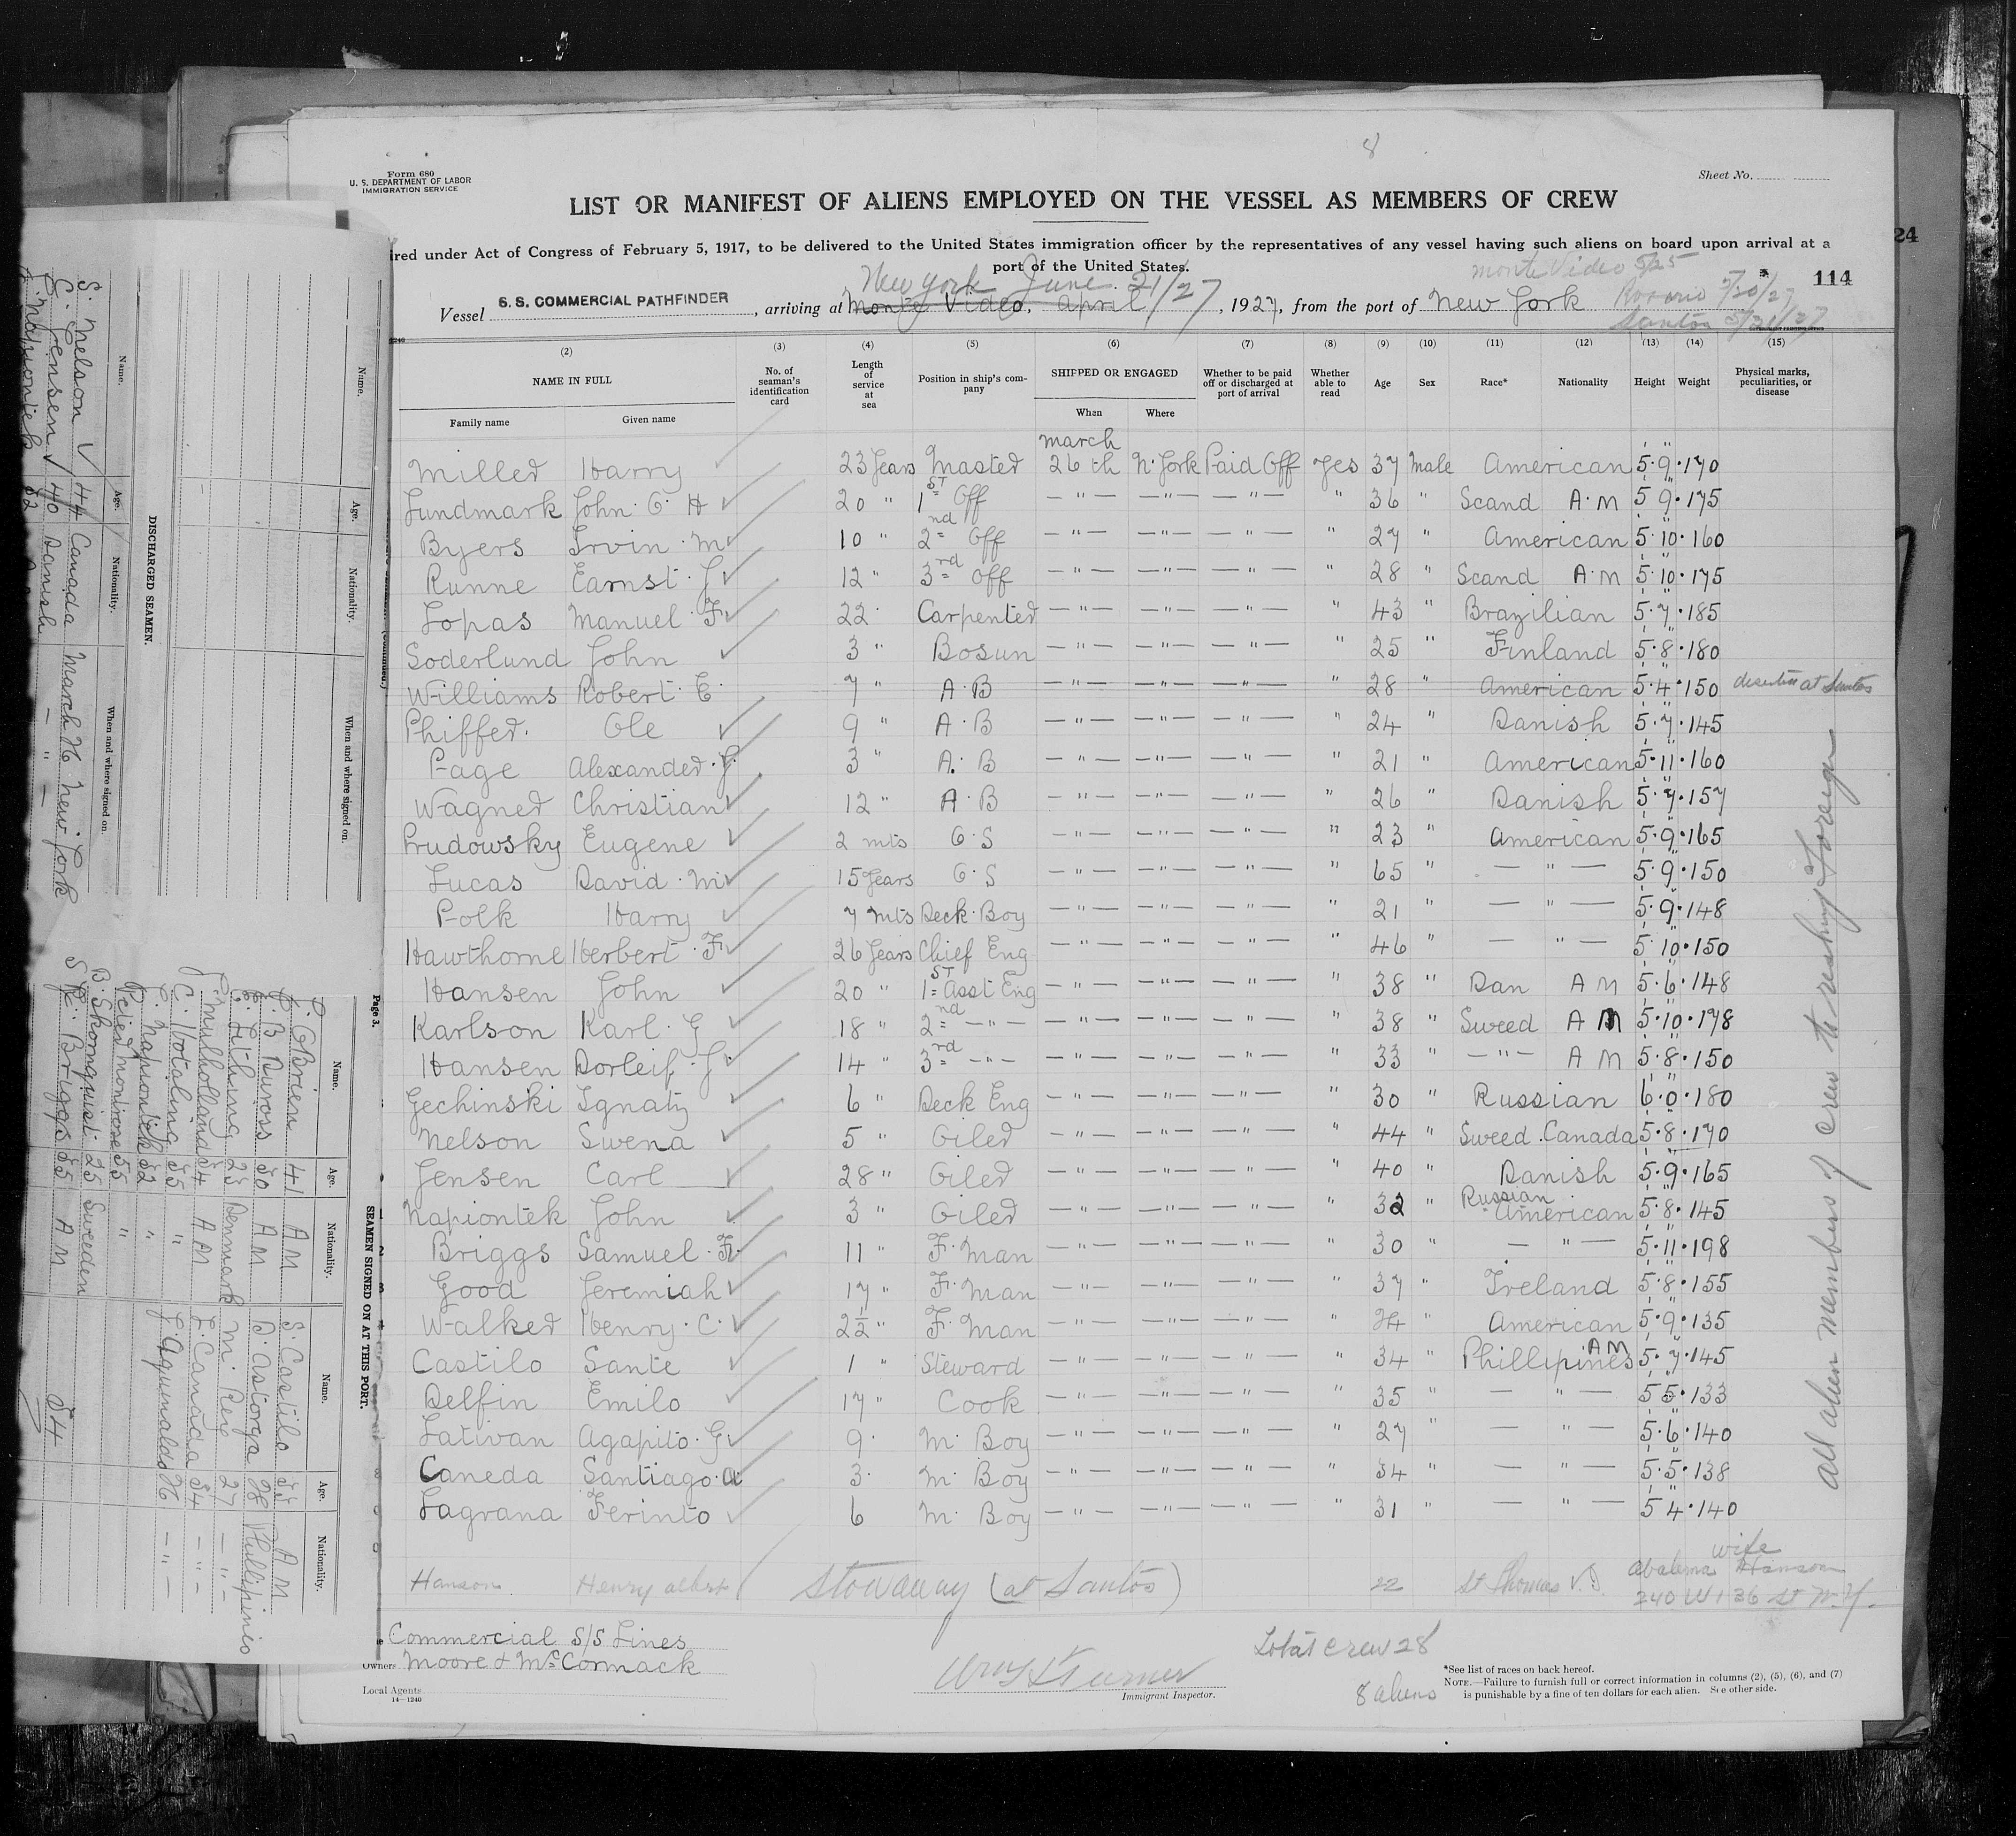 8
Form 680
U. S. DEPARTMENT OF LABOR
IMMIGRATION SERVICE
Sheet No.
LIST OR MANIFEST OF ALIENS EMPLOYED ON THE VESSEL AS MEMBERS OF CREW
24
ired under Act of Congress of February 5, 1917, to be delivered to the United States immigration officer by the representatives of any vessel having such aliens on board upon arrival at a
port of the United States.
114
New York June 21/27
Monte Video 5/25
Rosario 5/20/27
Santos 5/31/27
Vessel S.S. COMMERCIAL PATHFINDER, arriving at Monte Video, April, 1927, from the port of New York
(2) (3) (4) (5) (6) (7) (8) (9) (10) (11) (12) (13) (14) (15)
NAME IN FULL No. of seaman's identification card Length of service at sea Position in ship's company SHIPPED OR ENGAGED Whether to be paid off or discharged at port of arrival Whether able to read Age Sex Race* Nationality Height Weight Physical marks, peculiarities, or disease
Family name Given name When Where
Miller Harry 23 Years Master March 26th N. York Paid Off Yes 37 Male American 5.9. 170
Lundmark John G. H 20 " 1st Off — " — — " — — " — " 36 " Scand A.M 5 9. 175
Byers Irvin M 10 " 2nd Off — " — — " — — " — " 27 " American 5.10. 160
Runne Earnst J 12 " 3rd Off — " — — " — — " — " 28 " Scand A.M 5.10. 175
Lopas Manuel F 22 Carpenter — " — — " — — " — " 43 " Brazilian 5.7. 185
Soderlund John 3 " Bosun — " — — " — — " — " 25 " Finland 5.8. 180
Williams Robert E. 7 " A.B — " — — " — — " — " 28 " American 5.4. 150 at Santos
Phiffer Ole 9 " A.B — " — — " — — " — " 24 " Danish 5.7. 145
Page Alexander J. 3 " A.B — " — — " — — " — " 21 " American 5.11. 160
Wagner Christian 12 " A.B — " — — " — — " — " 26 " Danish 5.7. 157
Prudowsky Eugene 2 mts O.S — " — — " — — " — " 23 " American 5.9. 165
Lucas David M 15 Years O.S — " — — " — — " — " 65 " — " — 5.9. 150
Polk Harry 7 mts Deck Boy — " — — " — — " — " 21 " — " — 5.9. 148
Hawthorne Herbert F 26 Years Chief Eng — " — — " — — " — " 46 " — " — 5 10. 150
Hansen John 20 " 1st Asst Eng — " — — " — — " — " 38 " Dan A M 5.6. 148
Karlson Karl G 18 " 2nd — " — — " — — " — — " — " 38 " Sweed A M 5.10. 178
Hansen Dorleif J 14 " 3rd — " — — " — — " — — " — " 33 " — " — A M 5.8. 150
Gechinski Ignatz 6 " Deck Eng — " — — " — — " — " 30 " Russian 6.0. 180
Nelson Swena 5 " Oiler — " — — " — — " — " 44 " Sweed Canada 5.8. 170
Jensen Carl 28 " Oiler — " — — " — — " — " 40 " Danish 5.9. 165
Napiontek John 3 " Oiler — " — — " — — " — " 32 " Russian American 5.8. 145
Briggs Samuel F. 11 " F. Man — " — — " — — " — " 30 " — " — 5.11. 198
Good Jeremiah 17 " F. Man — " — — " — — " — " 37 " Ireland 5.8. 155
Walker Henry C. 2½ " F. Man — " — — " — — " — " 24 " American 5.9. 135
Castilo Sante 1 " Steward — " — — " — — " — " 34 " Phillipines A M 5.7. 145
Delfin Emilo 17 " Cook — " — — " — — " — " 35 " — " — 5 5. 133
Lativan Agapito G 9 M. Boy — " — — " — — " — " 27 " — " — 5.6. 140
Caneda Santiago A 3 M. Boy — " — — " — — " — " 34 " — " — 5.5. 138
Lagrana Ferinto 6 M. Boy — " — — " — — " — " 31 " — " — 5 4. 140
Hanson Henry Albert Stowaway (at Santos) 22 St Thomas V.I. wife Hanson
240 W 136 St N.Y.
all alien members of crew to reship foreign
Commercial S/S Lines
Owners Moore & McCormack
Local Agents
14—1240
Immigrant Inspector.
Total crew 28
8 aliens
*See list of races on back hereof.
NOTE.—Failure to furnish full or correct information in columns (2), (5), (6), and (7)
is punishable by a fine of ten dollars for each alien. See other side.
DISCHARGED SEAMEN.
Name. Age. Nationality. When and where signed on.
Name. Age. Nationality. When and where signed on.
S. Nelson 44 Canada March 26 New York
C. Jensen 40 Danish — " —
Page 3.
SEAMEN SIGNED ON AT THIS PORT.
Name. Age. Nationality. Name. Age. Nationality.
O'Brien 41 A M
S. Castilo A M
B. Astorga 28 Phillipines
Denmark
M. Rey 27 — " —
Mulholland A M
J. Canada — " —
C. Hotaling "
J. Aguinaldo 26 — " —
J. Napiontek "
Peter Montrose "
B. Skonquist 25 Sweeden
Briggs A M